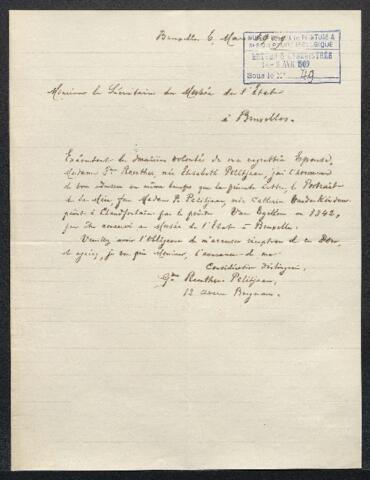 Bruxelles 6 Mars
MUSÉES DE PEINTURE &
DE SCULPTURE DE BELGIQUE
LETTRE ENREGISTRÉE
AVR 1909
Sous le N° 49
Monsieur le Secrétaire du Musée de l'Etat
à Bruxelles.
Exécutant les dernières volontés de ma regrettée Epouse,
Madame Gve Renther, née Elisabeth Petitjean, j'ai l'honneur
de vous adresser en même temps que la présente lettre, le Portrait
de sa Mère, feu Madame P. Petitjean, née Cathérine
peint à Chaudfontaine par le peintre Van Eycken en 1842,
pour être conservé au Musée de l'Etat à Bruxelles.
Veuillez avoir l'obligeance de m'accuser réception de ce Don,
et agréez, je vous prie Monsieur, l'assurance de ma
Considération distinguée.
Gve Renther Petitjean,
12 avenue Brugmann.